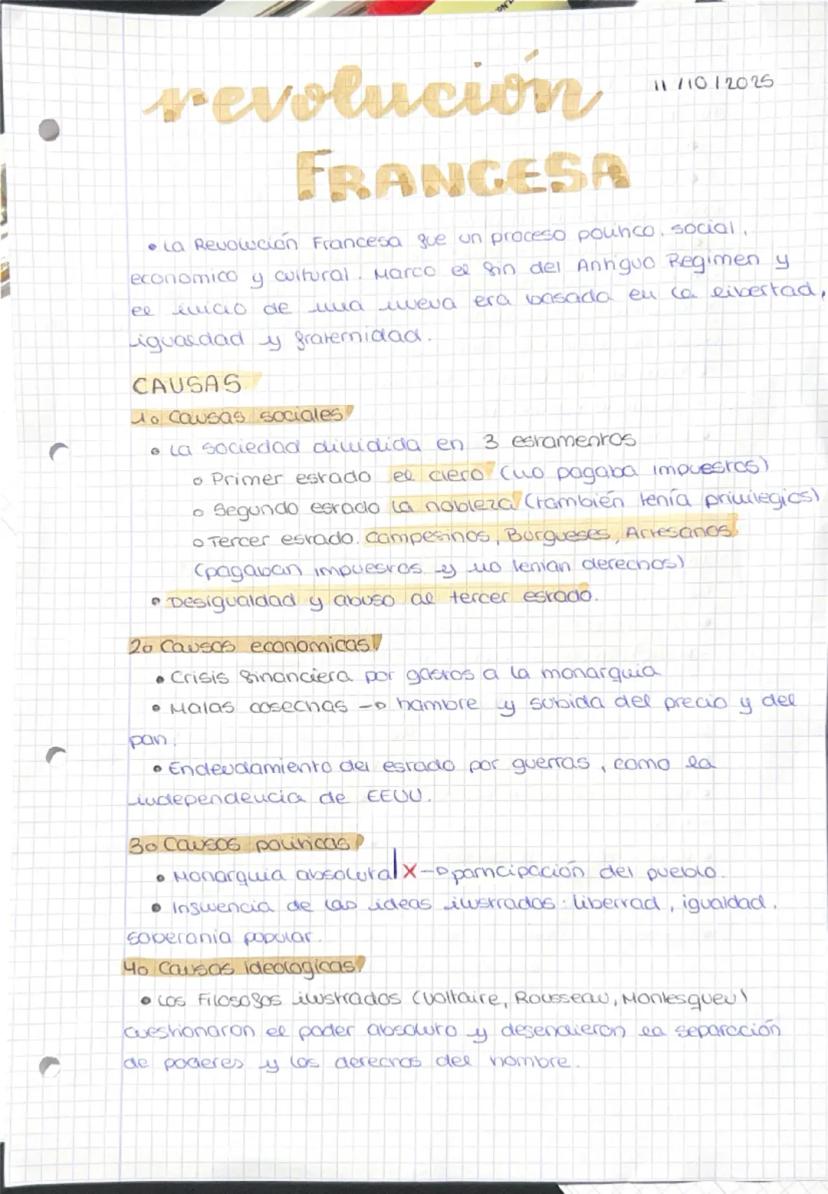 revolución
11/10/2025
FRANCESA
• La Revolución Francesa fue un proceso político, social,
economico y cultural. Marco el fin del Antiguo Regimen y
el inicio de una nueva era basada en la libertad,
igualdad y fraternidad.
CAUSAS
1o Causas sociales
• La sociedad dividida en 3 estamentos
o Primer estado el clero (no pagaba impuestos)
o Segundo estado la nobleza (también tenía privilegios)
o Tercer estado. Campesinos, Burgueses, Artesanos
(pagaban impuestos y no tenian derechos)
• Desigualdad y abuso al tercer estado.
2o Causas economicas
• Crisis financiera por gastos a la monarquia
• Malas cosechas → hambre y subida del precio y del
pan.
• Endeudamiento del estado por guerras, como la
independencia de EEUU.
3o Causas politicas
• Monarquia absoluta | x → participación del pueblo.
• Influencia de las ideas ilustradas: libertad, igualdad,
soberania popular.
4o Causas ideologicas
• Los Filosofos ilustrados (Voltaire, Rousseau, Montesqueu)
cuestionaron el poder absoluto y defendieron la separación
de poderes y los derechos del hombre.